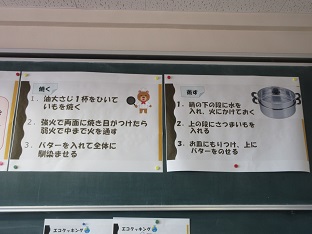 焼く
1. 油大さじ1杯をひいて
いもを焼く
2. 強火で両面に焼き目がつけたら
弱火で中まで火を通す
3. バターを入れて全体に
馴染ませる
蒸す
1. 鍋の下の段に水を
入れ、火にかけておく
2. 上の段にさつまいもを
入れる
3. お皿にもりつけ、上に
バターをのせる
エコクッキング
エコクッキング